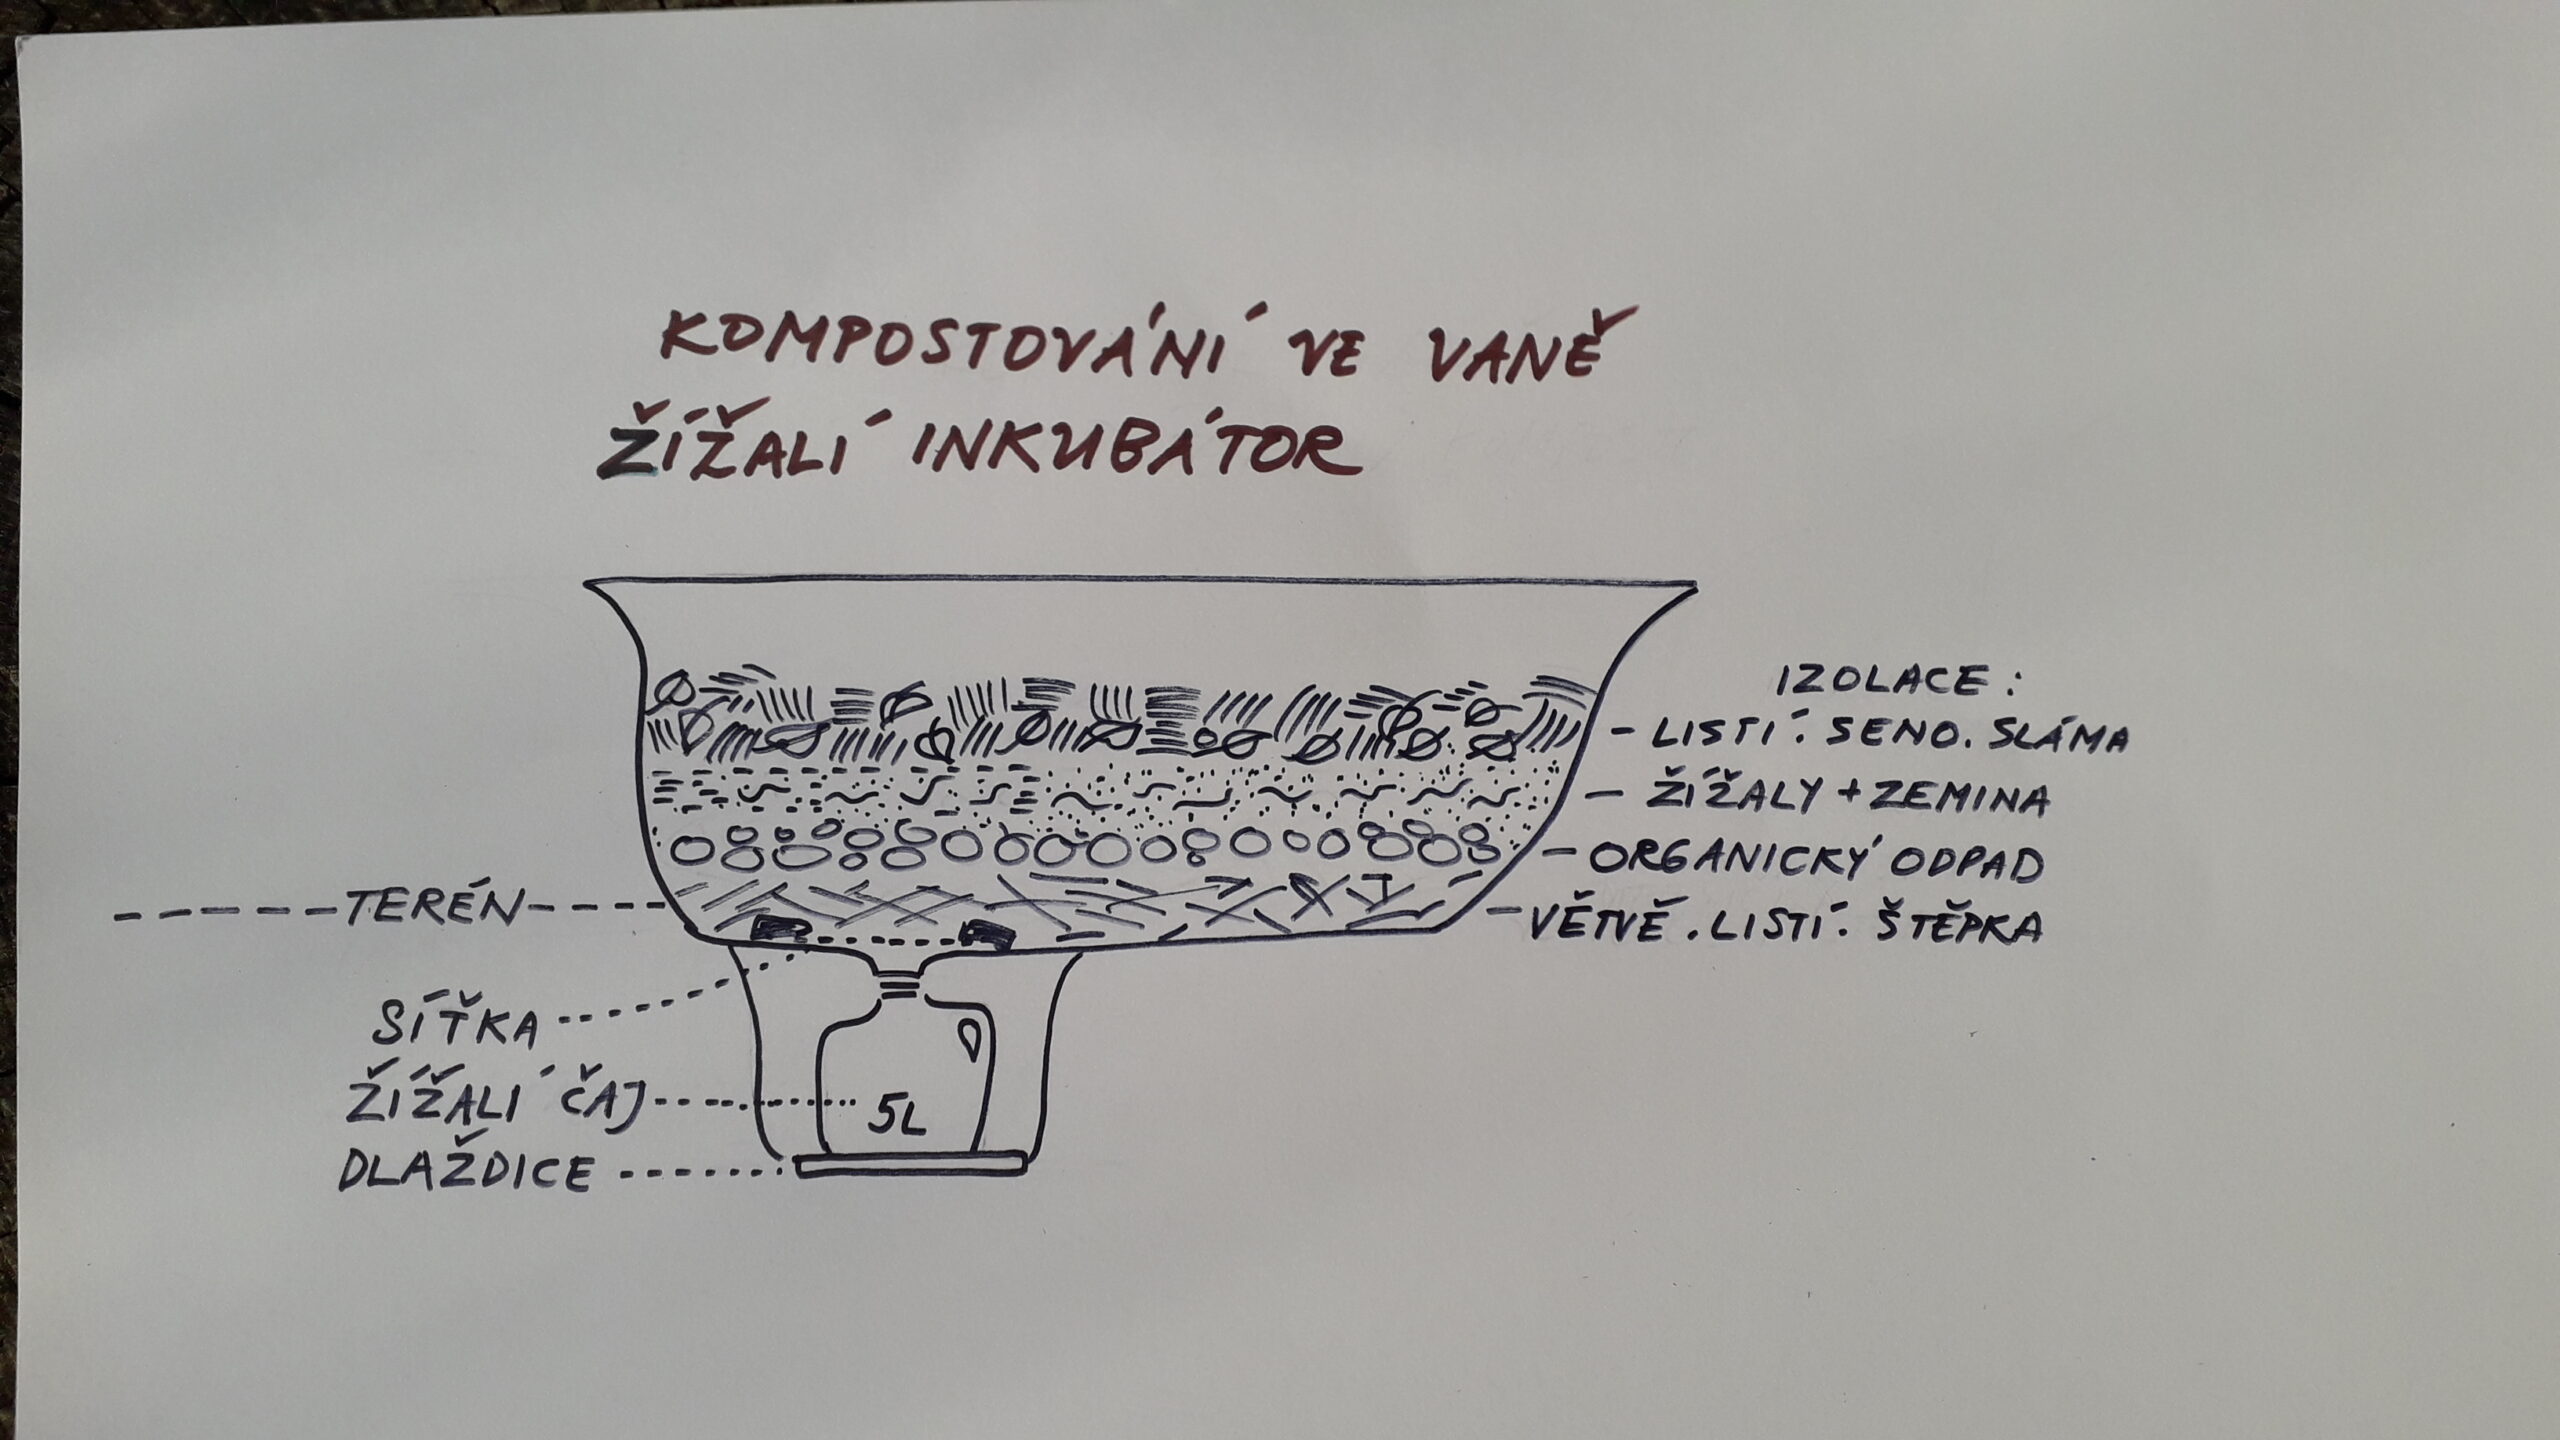 KOMPOSTOVÁNÍ VE VANĚ
ŽÍŽALÍ INKUBÁTOR
IZOLACE:
- LISTÍ. SENO. SLÁMA
- ŽÍŽALY + ZEMINA
- ORGANICKÝ ODPAD
TERÉN
- VĚTVĚ. LISTÍ. ŠTĚPKA
SÍŤKA
ŽÍŽALÍ ČAJ
5L
DLAŽDICE